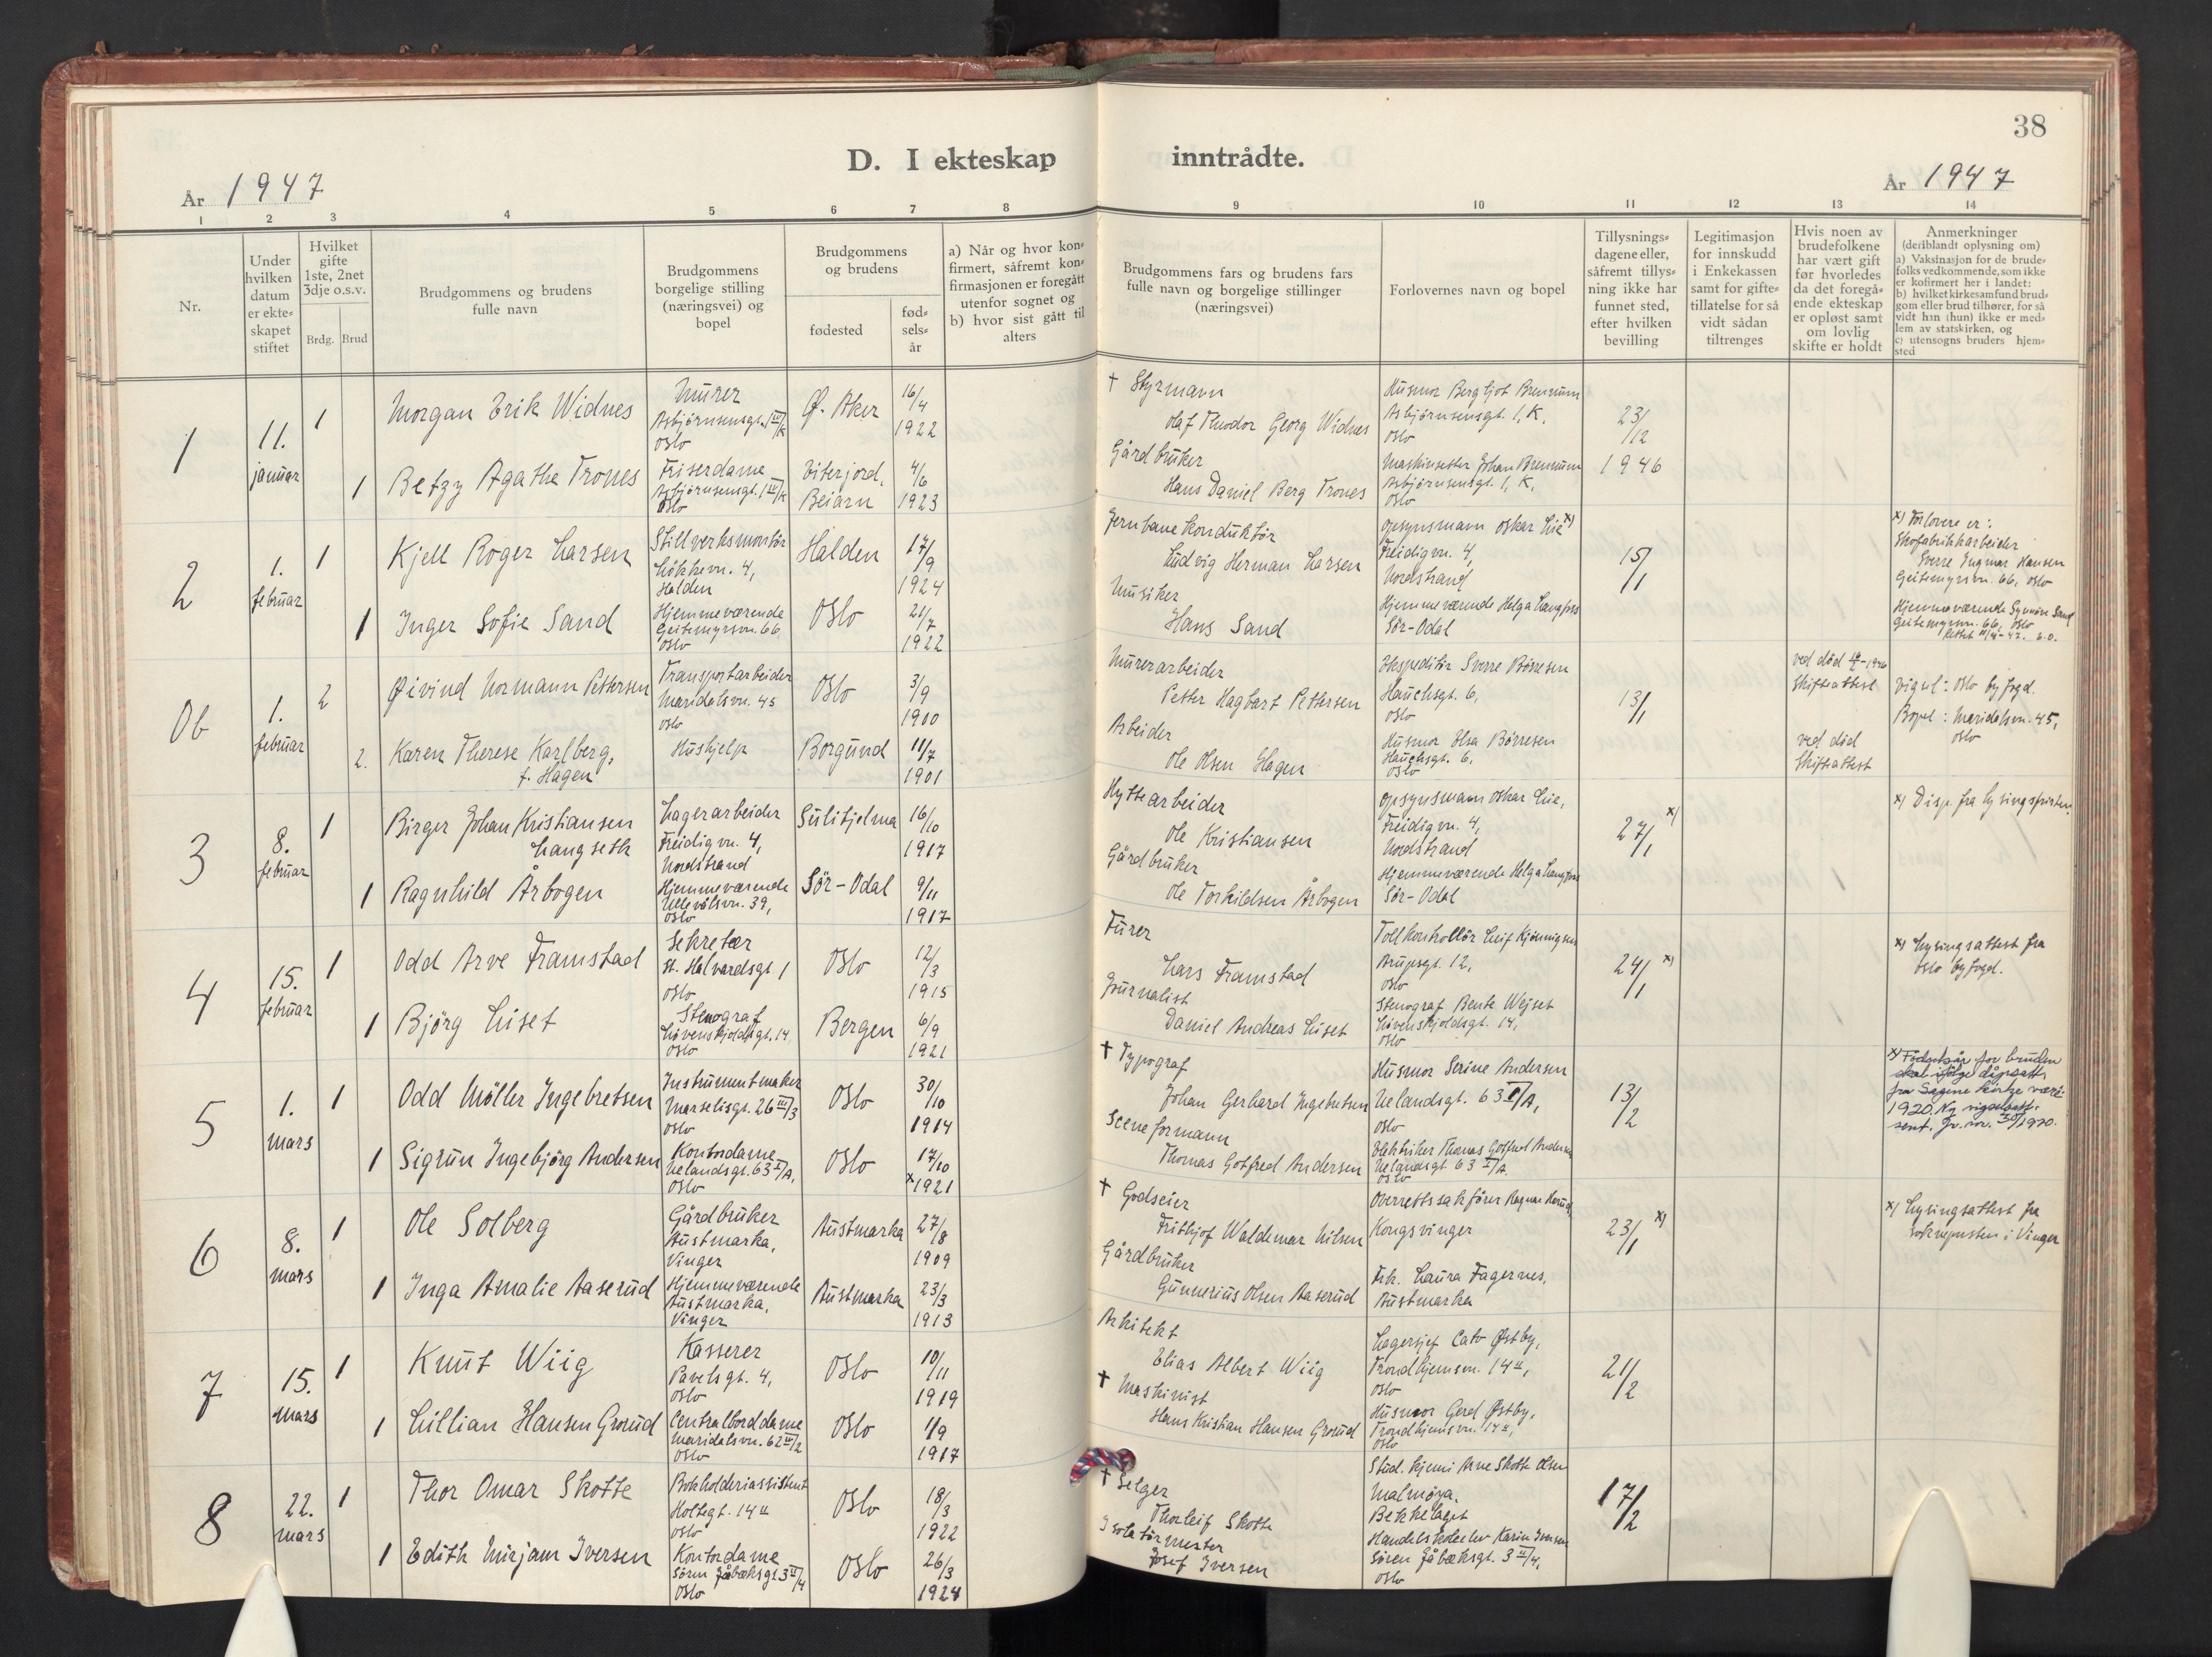 38
D. I ekteskap inntrådte.
År 1947
År 1947
1 2 3 4 5 6 7 8 9 10 11 12 13 14
Nr.
Under hvilken datum er ekteskapet stiftet
Hvilket gifte 1ste, 2net 3dje o.s.v.
Brdg. Brud
Brudgommens og brudens fulle navn
Brudgommens borgelige stilling (næringsvei) og bopel
Brudgommens og brudens
fødested
fødselsår
a) Når og hvor konfirmert, såfremt konfirmasjonen er foregått utenfor sognet og
b) hvor sist gått til alters
Brudgommens fars og brudens fars fulle navn og borgelige stillinger (næringsvei)
Forlovernes navn og bopel
Tillysningsdagene eller, såfremt tillysning ikke har funnet sted, efter hvilken bevilling
Legitimasjon for innskudd i Enkekassen samt for giftetillatelse for så vidt sådan tiltrenges
Hvis noen av brudefolkene har vært gift før hvorledes da det foregående ekteskap er opløst samt om lovlig skifte er holdt
Anmerkninger
(deriblandt oplysning om)
a) Vaksinasjon for de brudefolks vedkommende, som ikke er kofirmert her i landet:
b) hvilket kirkesamfund brudgom eller brud tilhører, for så vidt han (hun) ikke er medlem av statskirken, og
c) utensogns bruders hjemsted
1
11.
januar
1
Morgan Erik Widnes
Murer
Asbjørnsensgt. 1 III/K
Oslo
Ø. Aker
16/4
1922
† Styrmann
Olaf Theodor Georg Widnes
Husmor Bergljot Brennum
Asbjørnsensgt. 1, K.
Oslo
23/12
1946
1
Betzy Agathe Trones
Friserdame
Asbjørnsensgt. 1 III/K
Oslo
Eiterjord,
Beiarn
4/6
1923
Gårdbruker
Hans Daniel Berg Trones
Maskinsetter Johan Brennum
Asbjørnsensgt. 1, K,
Oslo
2
1.
februar
1
Kjell Roger Larsen
Stillverksmontør
Løkkevn. 4,
Halden
Halden
17/9
1924
Jernbanekonduktør
Ludvig Herman Larsen
Opsynsmann Oskar Lie x)
Freidigvn. 4,
Nordstrand
15/1
x) Forlovere er:
Skofabrikkarbeider
Sverre Ingmar Hansen
Geitemyrsvn. 66, Oslo
1
Inger Sofie Sand
Hjemmeværende
Geitemyrsvn. 66
Oslo
Oslo
21/7
1922
Musiker
Hans Sand
Hjemmeværende Helga Langfoss
Sör-Odal
Hjemmeværende Synnöve Sand
Geitemyrsvn. 66, Oslo
0b
1.
februar
2
Øivind Normann Pettersen
Transportarbeider
Maridalsvn. 45
Oslo
Oslo
3/9
1900
Murerarbeider
Petter Hagbart Pettersen
Ekspeditør Sverre Børresen
Hauchsgt. 6,
Oslo
13/1
ved død
Skifteattest
Vigsl: Oslo byfogd.
Bopel: Maridalsvn. 45,
Oslo
2.
Karen Therese Karlberg,
f. Hagen
Hushjelp
Borgund
11/7
1901
Arbeider
Ole Olsen Hagen
Husmor Elsa Børresen
Hauchsgt. 6,
Oslo
ved död
Skifteattest
3
8.
februar
1
Birger Johan Kristiansen
Langseth
Lagerarbeider
Freidigvn. 4,
Nordstrand
Sulitjelma
16/10
1917
Hyttearbeider
Ole Kristiansen
Opsynsmann Oskar Lie,
Freidigvn. 4,
Nordstrand
27/1 x)
x) Disp. fra lysingsfristen.
1
Ragnhild Årbogen
Hjemmeværende
Ullevålsvn. 39,
Oslo
Sör-Odal
9/11
1917
Gårdbruker
Ole Torkildsen Årbogen
Hjemmeværende Helga Langfoss
Sör-Odal
4
15.
februar
1
Odd Arve Framstad
Sekretær
St. Halvardsgt 1
Oslo
Oslo
12/3
1915
Furer
Lars Framstad
Tollkontrollör Leif Kjönnigsen
Arupsgt. 12,
Oslo
24/1 x)
x) Lysingsattest fra
Oslo byfogd.
1
Björg Liset
Stenograf
Løvenskjoldsgt. 14
Oslo
Bergen
6/9
1921
Journalist
Daniel Andreas Liset
Stenograf Bente Wejset
Løvenskjoldsgt. 14,
Oslo
5
1.
mars
1
Odd Møller Ingebretsen
Instrumentmaker
Marselisgt. 26 III/3
Oslo
Oslo
30/10
1914
† Typograf
Johan Gerhard Ingebretsen
Husmor Serine Andersen
Uelandsgt. 63 I/A,
Oslo
13/2
x) Födselsår for bruden
skal ifölge dåpsatt.
fra Sagene kirke være:
1920. Ny vigselatt.
sent.
1
Sigrun Ingebjørg Andersen
Kontordame
Uelandsgt. 63 I/A,
Oslo
Oslo
17/10
x1921
Sceneformann
Thomas Gotfred Andersen
Elektriker Thomas Gotfred Andersen
Uelandsgt 63 I/A
Oslo
6
8.
mars
1
Ole Solberg
Gårdbruker
Austmarka,
Vinger
Austmarka
27/8
1909
† Godseier
Frithjof Waldemar Nilsen
Overrettssakfører Ragnar
Kongsvinger
23/1 x)
x) Lysingsattest fra
soknepresten i Vinger
1
Inga Amalie Aaserud
Hjemmeværende
Austmarka,
Vinger
Austmarka
23/3
1913
Gårdbruker
Gunnerius Olsen Aaserud
Frk. Laura Fagernes,
Austmarka
7
15.
mars
1
Knut Wiig
Kasserer
Pavelsgt. 4,
Oslo
Oslo
10/11
1919
Arkitekt
Elias Albert Wiig
Lagersjef Cato Østby,
Trondhjemsvn. 14 II,
Oslo
21/2
1
Lillian Hansen Grorud
Centralborddame
Maridalsvn. 62 II/2
Oslo
Oslo
1/9
1917
† Maskinist
Hans Kristian Hansen Grorud
Husmor Gerd Østby,
Trondhjemsvn. 14 II,
Oslo
8
22.
mars
1
Thor Omar Skotte
Bokholderiassistent
Holtegt. 14 II
Oslo
Oslo
18/3
1922
† Selger
Thorleif Skotte
Stud. kjemi Arne Skotte Olsen
Malmøya,
Bekkelaget
17/2
1
Edith Mirjam Iversen
Kontordame
Søren Jåbæksgt 3 II/4
Oslo
Oslo
26/3
1924
Isolatørmester
Josef Iversen
Handelsskoleelev Karin Iversen
Søren Jåbæksgt. 3 II/4,
Oslo